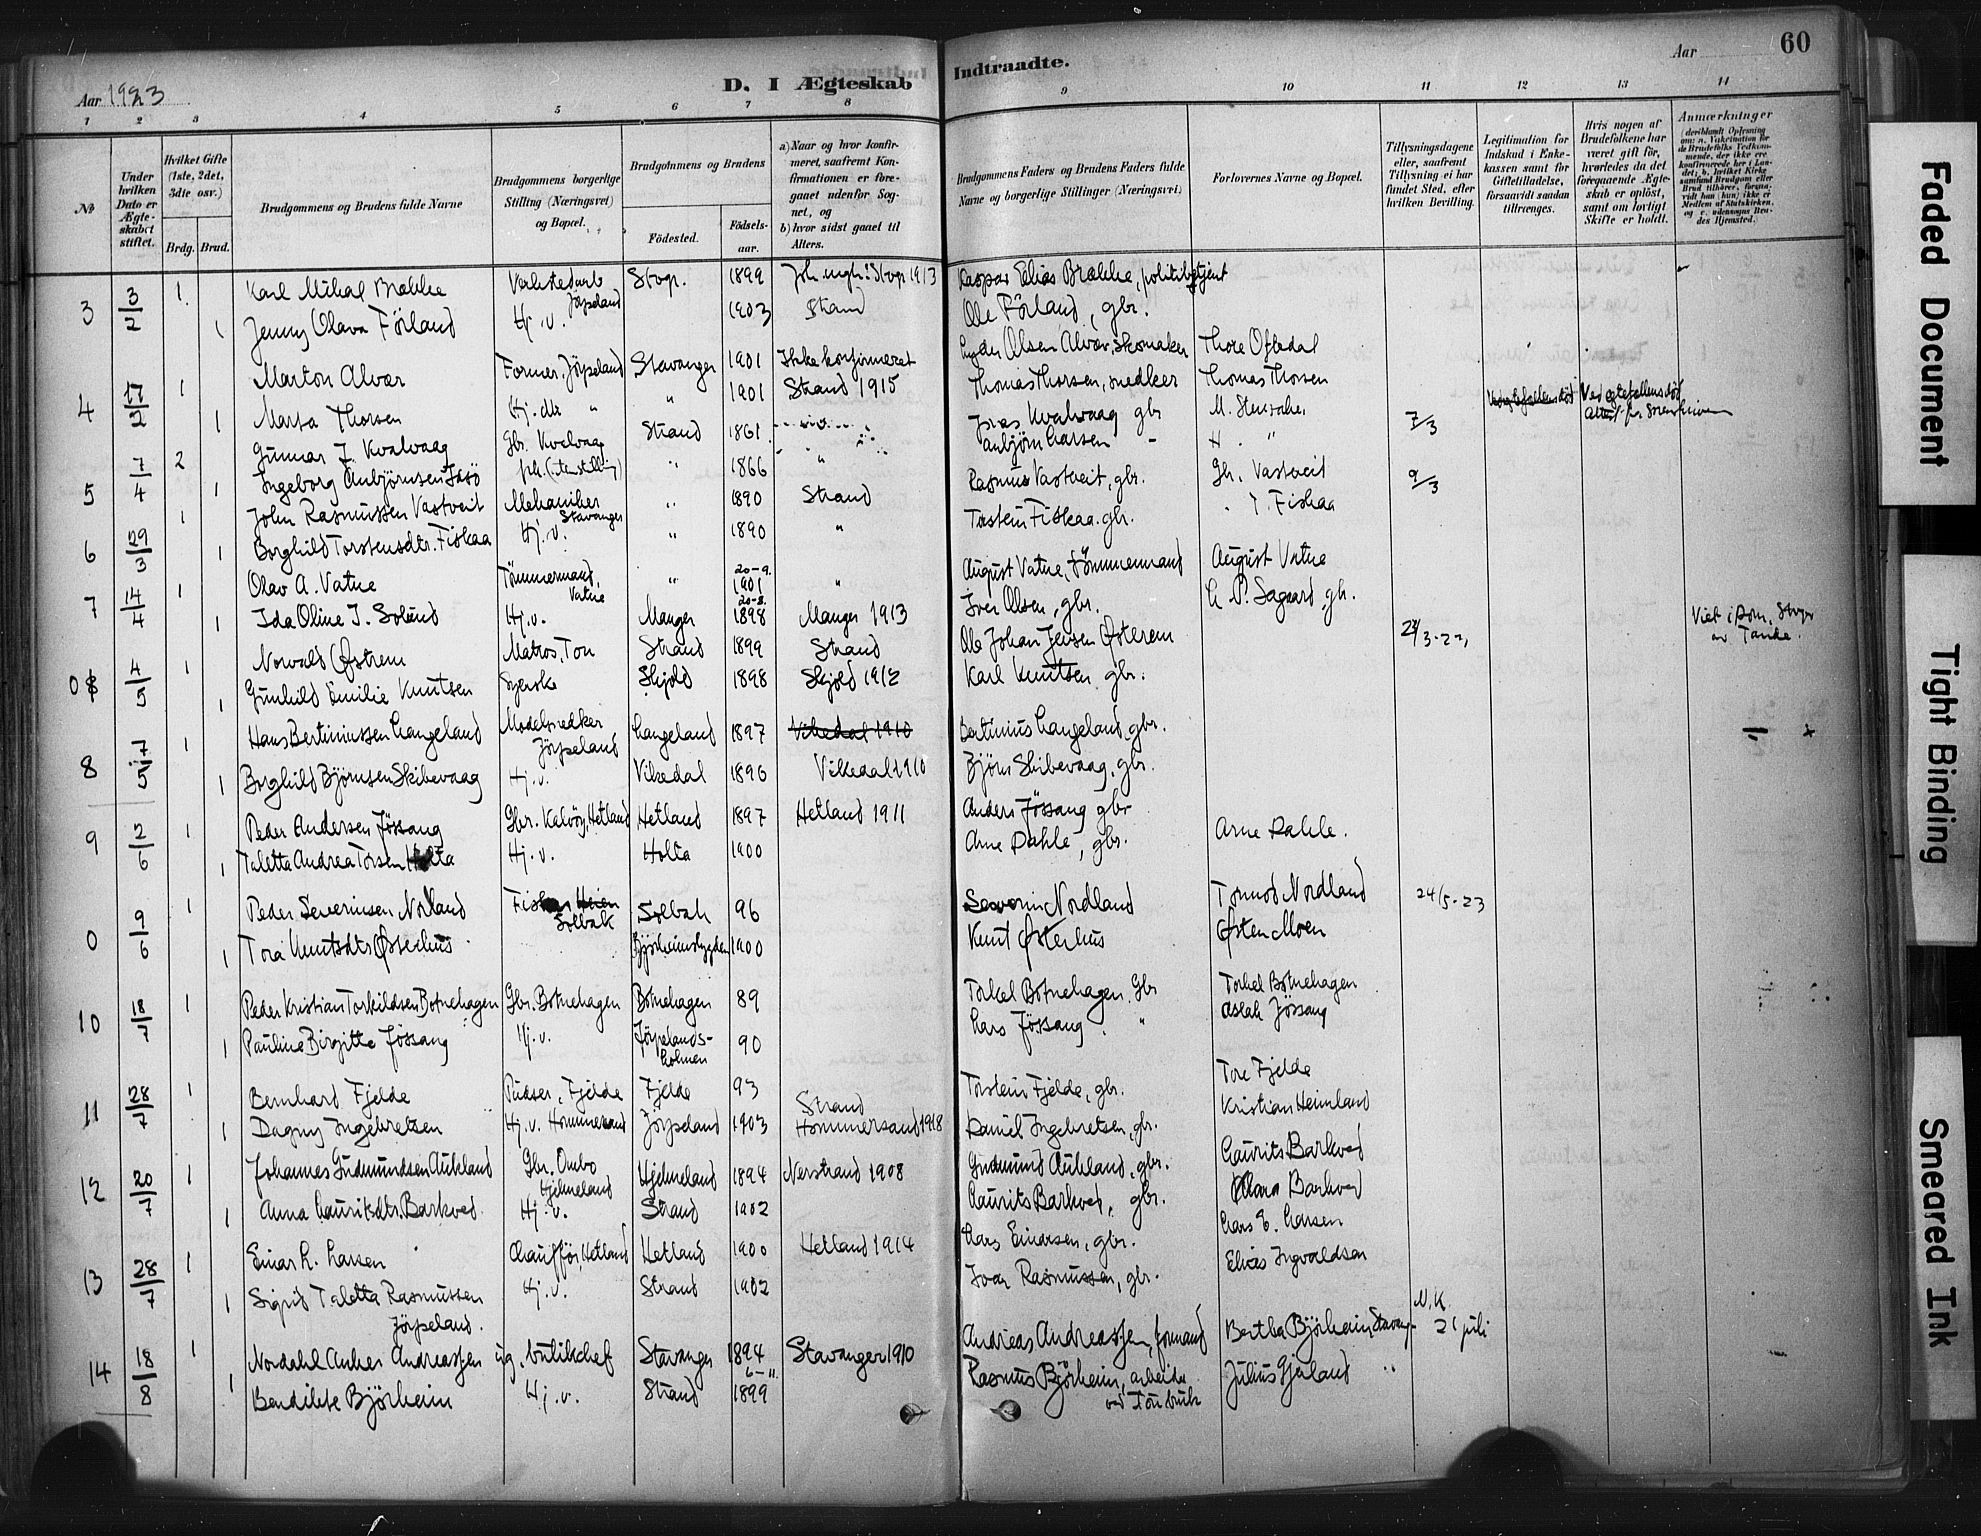 Aar 1923
D. I Ægteskab Indtraadte.
Aar 60
1 2 3 4 5 6 7 8 9 10 11 12 13 14
№
Under hvilken Dato er Ægteskabet stiftet.
Hvilket Gifte (1ste, 2det, 3die osv.)
Brdg. Brud.
Brudgommens og Brudens fulde Navne
Brudgommens borgerlige Stilling (Næringsvei) og Bopæl.
Brudgommens og Brudens
Fødested. Fødselsaar.
a) Naar og hvor konfirmeret, saafremt Konfirmationen er foregaaet udenfor Sognet, og
b) hvor sidst gaaet til Alters.
Brudgommens Faders og Brudens Faders fulde Navne og borgerlige Stillinger (Næringsvei)
Forlovernes Navne og Bopæl.
Tillysningsdagene eller, saafremt Tillysning ei har fundet Sted, efter hvilken Bevilling.
Legitimation for Indskud i Enkekassen samt for Giftetilladelse, forsaavidt saadan tiltrænges.
Hvis nogen af Brudefolkene har været gift før, hvorledes da det foregaaende Ægteskab er opløst, samt om lovligt Skifte er holdt.
Anmærkninger
3 3/2 1 Karl Mikal Brekke Verkstedarb Jörpeland Stvgr. 1899 Stvgr 1913 Kaspar Elias Brekke, politibetjent
1 Jenny Olava Förland Hj. v. 1903 Strand Ole Förland, gbr.
4 17/2 1 Marton Alvær Former, Jörpeland Stavanger 1901 Ikke konfirmeret Olsen Alvær, Skomaker Thore Oftedal
1 Marta Thorsen Hj. " " 1901 Strand 1915 Thomas Thorsen, snedker Thomas Thorsen
5 7/4 2 Gunnar J. Kvalvaag Gbr. Kvalvaag Strand 1861 Jonas Kvalvaag gbr M. 7/3 Ved egtefellens död
1 Ingeborg Anbjörnsen Idsö " 1866 " Anbjörn Larsen - "
6 29/3 1 John Rasmussen Vastveit Mekaniker Stavanger " 1890 Strand Rasmus Vastveit, gbr. Gb. Vastveit 9/3
1 Borghild Torstensdtr. Fiskaa Hj. v. " 1890 " Torstein Fiskaa. gbr. Fiskaa
7 14/4 1 Olav A. Vatne Tömmermand, Vatne " 20-9. 1901 " August Vatne, tömmermand August Vatne
1 Ida Oline I. Solund Hj. v. Manger 20-8. 1898 Manger 1913 Iver Olsen, gbr.
0 8 4/5 1 Norvald Østrem Matros, Tou Strand 1899 Strand Ole Johan Jensen Østerem Viet i Dom. Stvgr av Tanke.
1 Gunhild Emilie Knutsen Syerske Skjold 1898 Skjold 1912 Karl Knutsen gbr.
8 7/5 1 Hans Bertiniussen Langeland Modelsnedker Jörpeland Langeland 1897 Vikedal 1910 Bertinius Langeland gbr.
1 Borghild Björnsen Skibevaag Hj. v. Vikedal 1896 Vikedal 1910 Björn Skibevaag, gbr.
9 2/6 1 Peder Andersen Jössang Gbr. Kalvöy, Hetland Hetland 1897 Hetland 1911 Anders Jössang gbr
1 Taletta Andrea Torsen Holta Hj. v. Holta 1900 Arne Dahle, gbr. Arne Dahle.
0 9/6 1 Peder Severinsen Norland Fisker Heien Solbak Solbak 96 Severin Nordland Tormod Nordland 24/5-23
1 Tora Knutsdtr Østerhus Björheimsbygden 1900 Knut Østerhus Østen Moen
10 18/7 1 Peder Kristian Torkildsen Botnehagen Gbr. Botnehagen Botnehagen 89 Torkel Botnehagen Gbr Torkel Botnehagen
1 Pauline Birgitte Jössang Hj. v. Jörpelandsholmen 90 Lars Jössang " Aslak Jössang
11 28/7 1 Bernhard Fjelde Pudser, Fjelde Fjelde 93 Torstein Fjelde, gbr. Tore Fjelde
1 Dagny Ingebretsen Hj. v. Hommersand Jörpeland 1903 Strand Hommersand 1918 Daniel Ingebretsen, gbr. Kristian Heimland
12 20/7 1 Johannes Gudmundsen Aukland Gbr. Ombo Hjelmeland Hjelmeland 1894 Nerstrand 1908 Gudmund Aukland, gbr. Laurits Barkved
1 Anna Lauritsdtr. Barkved Hj. v. Strand 1902 Laurits Barkved, gbr. Barkved
13 28/7 1 Einar L. Larsen Chauffør, Hetland Hetland 1900 Hetland 1914 Lars Einarsen, gbr. Lars E. Larsen
1 Sigrid Taletta Rasmussen Jörpeland. Hj. v. Strand 1902 Ivar Rasmussen, gbr. Elias Ingvaldsen
14 18/8 1 Nordahl Anker Andreassen ug. butikchef Stavanger 1894 Stavanger 1910 Andreas Andreassen, formand Bertha Björheim Stavanger N.K. 21 juli
1 Bendikte Björheim Hj. v. Strand 6-11. 1899 Rasmus Björheim, arbeider ved Tou bruk Julius Gjerland "
Faded Document
Tight Binding
Smeared Ink